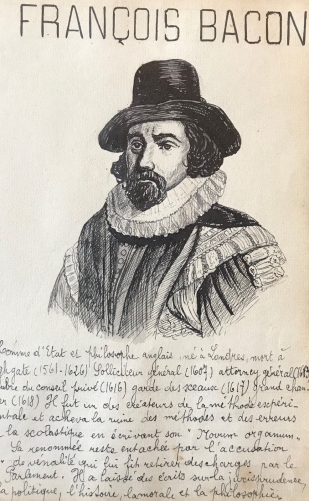 FRANÇOIS BACON
Homme d'Etat et philosophe anglais né à Londres, mort à
ghgate (1561-1626) Solliciteur général (1607) attorney général (1613
bre du conseil privé (1616) garde des sceaux (1617) grand chan-
er (1618) Il fut un des créateurs de la méthode expéri-
mentale et acheva la ruine des méthodes et des erreurs
la scolastique en écrivant son "Novum organum".
Sa renommée reste entachée par l'accusation
de vénalité qui lui fit retirer ses charges par le
Parlement. Il a laissé des écrits sur la jurisprudence,
la politique, l'histoire, la morale et la philosophie,